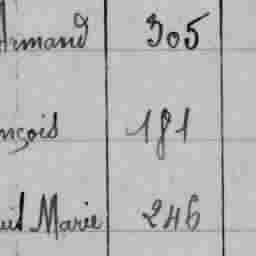 Armand 305
nçois 181
uis Marie 246